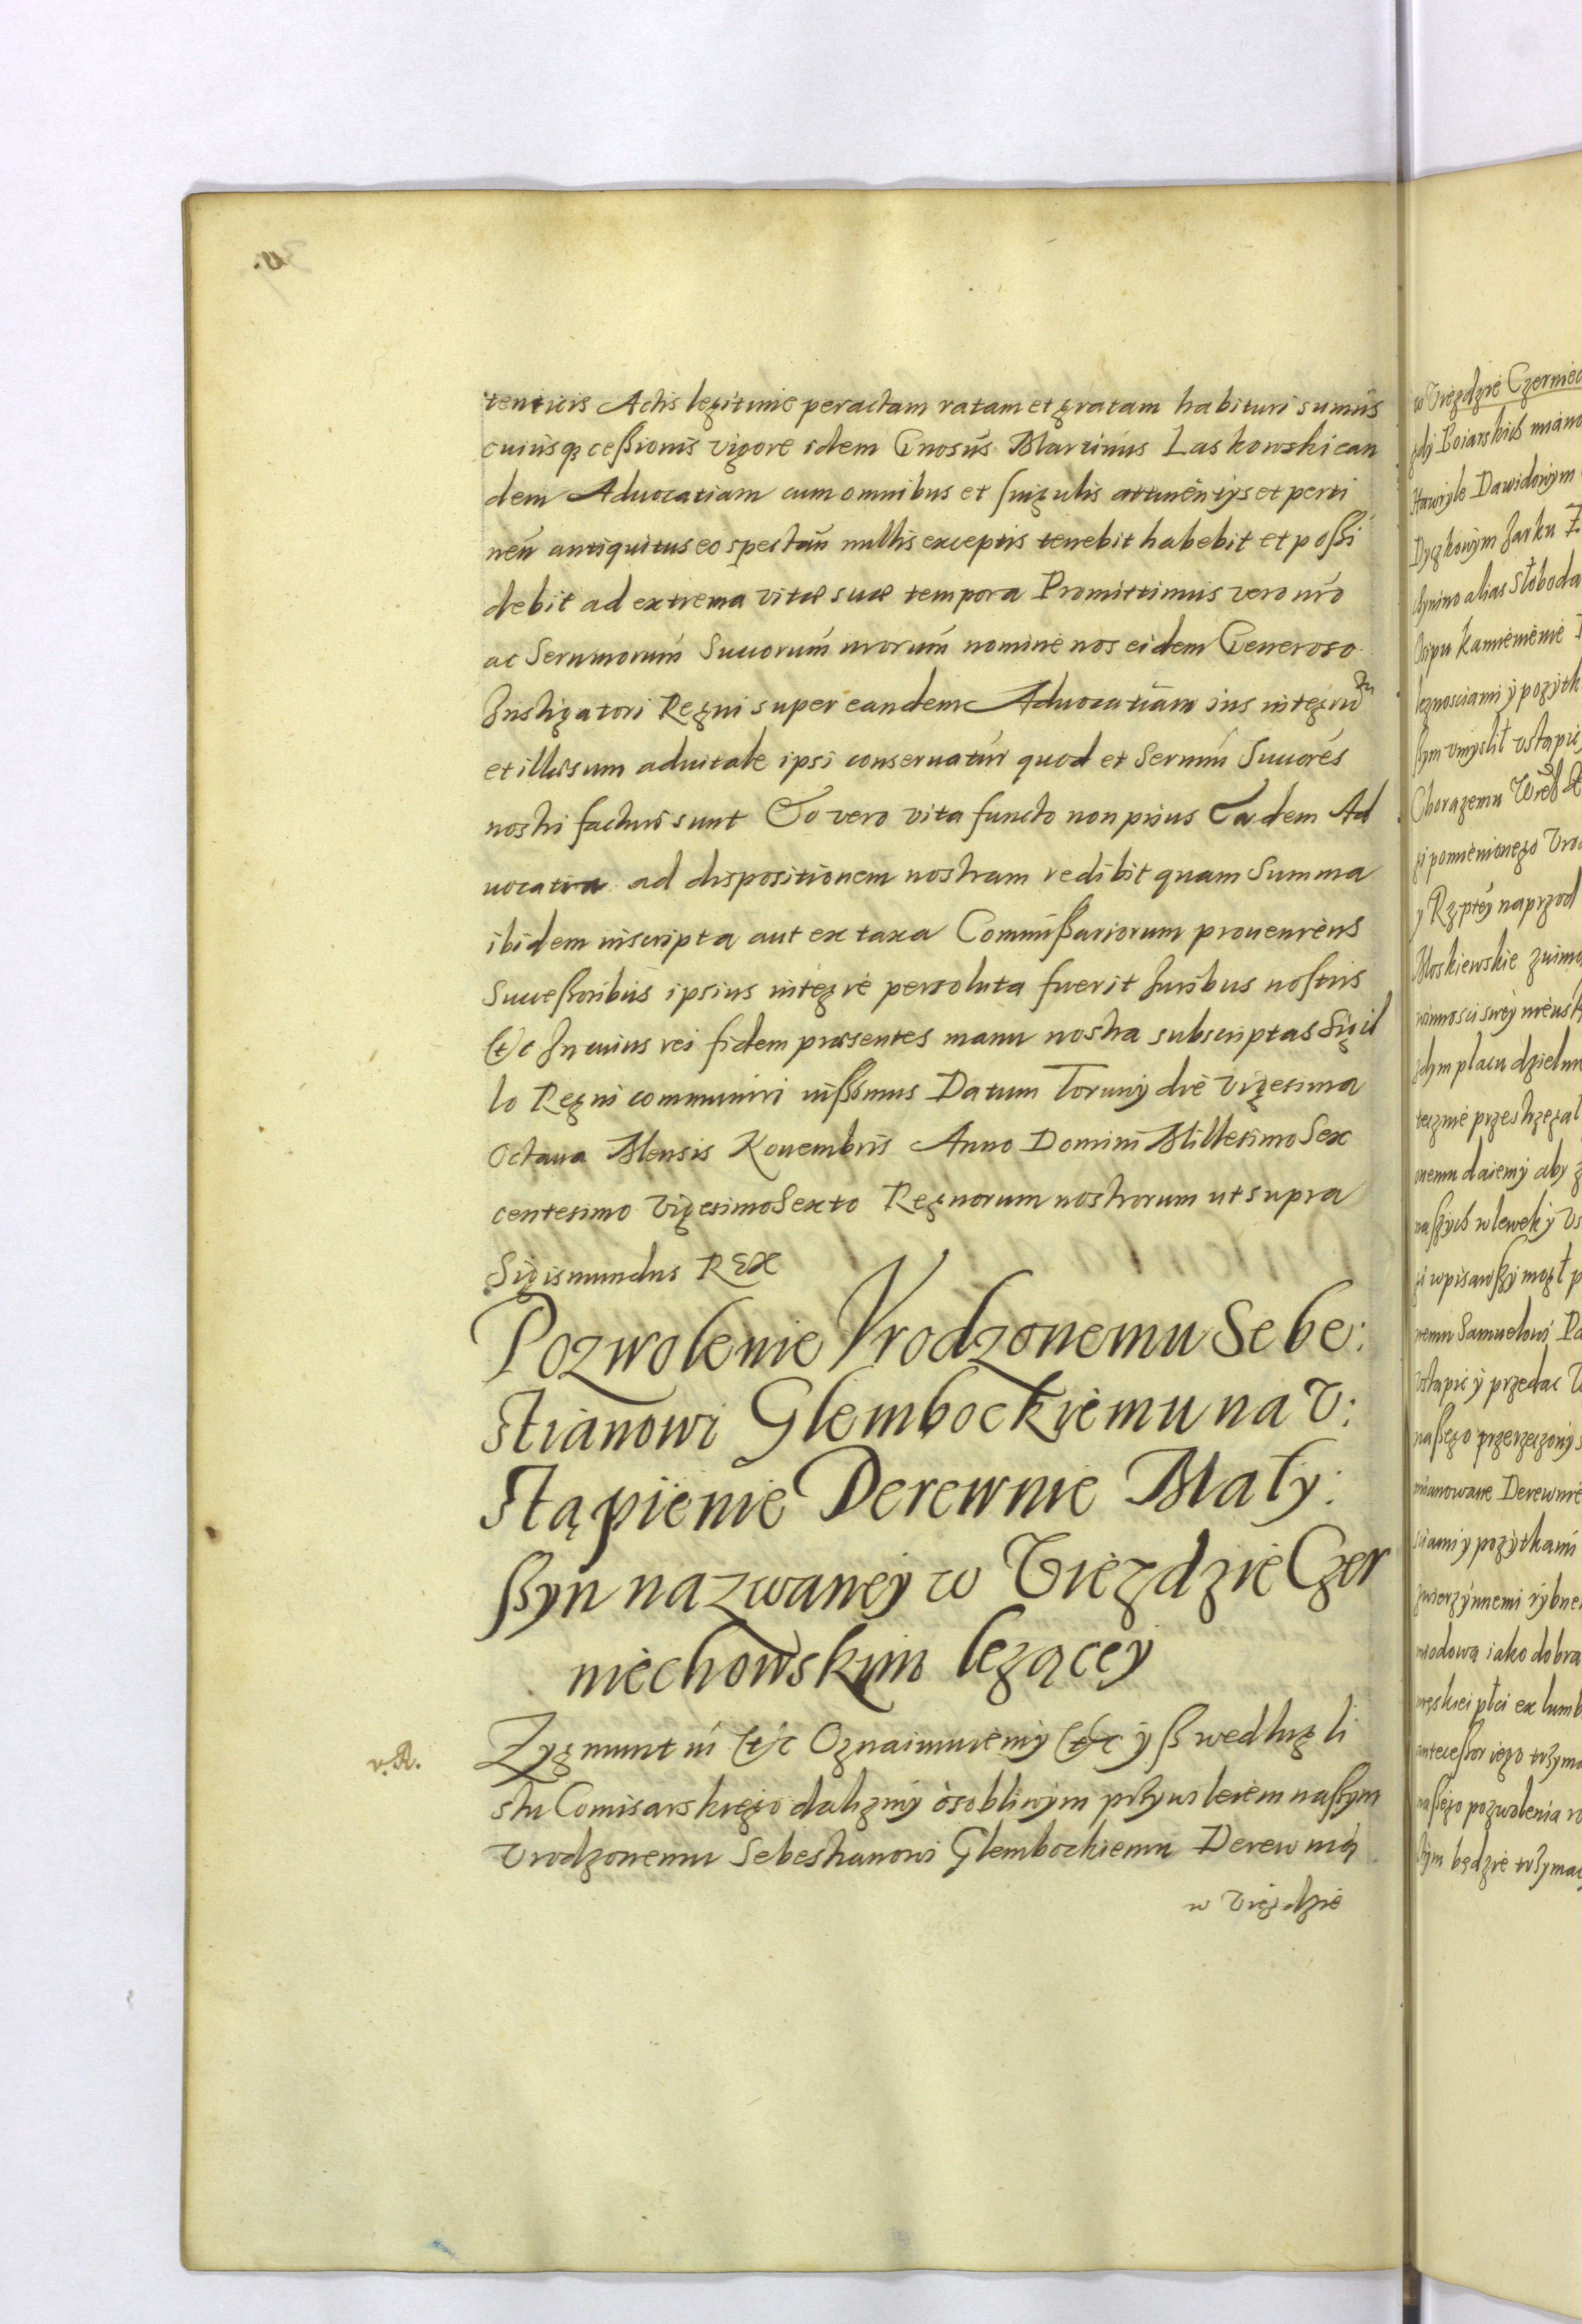 tenticis Actis legitime peractam ratam et gratam habituri sumus
cuiusq; cessionis vigore idem Gnosus Martinus Laskowski ean
dem Aduocatiam cum omnibus et singulis attinentÿs et perti
nen̄ antiquitus eo spectan̄ nullis exceptis tenebit habebit et possi
debit ad extrema vitæ suæ tempora Promittimus vero nr̄o
ac Sermorum Suuorum nrorum nomine nos eidem Generoso
Instigatori Regni super eandem Aduocatiam ius integrū
et illæsum aduitale ipsi conseruatur quod et Sermi Suuores
nostri facturi sunt Eo vero vita functo non prius Eadem Ad
uocatia ad dispositionem nostram redibit quam Summa
ibidem inscripta aut ex taxa Commißariorum proueniens
Sucessoribus ipsius integre persoluta fuerit Juribus nostris
etc In cuius rei fidem præsentes manu nostra subscriptas Sigil
lo Regni communiri iußimus Datum Torunÿ die Vigesima
Octaua Mensis Nouembris Anno Domini Millesimo Sex
centesimo Vigesimo Sexto Regnorum nostrorum ut supra
Sigismundus REX
Pozwolenie Vrodzonemu Sebe:
stianowi Glembockiemu na V:
stąpienie Derewnie Mały:
ßyn nazwaneÿ w Viezdzie Czer
niechowskim lezącey
v. A.
Zygmunt iii etc Oznaimuiemÿ etc ÿß wedlug li
stu Comisarskiego dalizmÿ osobliwÿm przywileiem naßym
Vrodzonemu Sebestianowi Glembockiemu Derewnią
w Viezdzie
w Viezdzie Czerniec
Boiarskich miano
Hawryle Dawidowym
Dyczkowÿm Jarku
alias Słoboda
Osipu Kamienienie
leznosciami ÿ pozÿtk
ßym vmyslił vstąpic
Chorazemu
pomienionego Vro
y Rzpteÿ naprzod
Moskiewskie zimo
winnosci sweÿ
zdym placu dzielnie
tecznie przestrzegał
onemu daiemÿ aby
naßÿch wlewek ÿ
wpisawßÿ mogł
nemu Samuelowi Pa
vstąpic ÿ przedac
naßego przerzeczonÿ
mianowane Derewnie
sciami y pozÿtkami
zwierzÿnnemi rÿbne
miodową iako dobra
męskiei płci ex lumb
antecessor iego trzyma
naßego pozwolenia
tÿm będzie trzymac